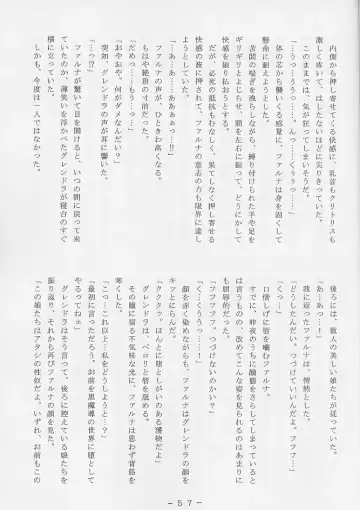 内側から押し寄せてくる快感に、乳首もクリトリスも
激しく疼いて、はしたないほどに尖りきっていた。
このままでは、気が狂ってしまいそうだ。
「…うっ…うぅっ……、んっ…くぅうっ……」
体の芯から襲いくる感覚に、ファルナは全身を強ばらせ
懸命に耐えようとした。
苦悶の喘ぎを洩らしながら、縛り付けられた手や足を
ギリギリとよじらせ、頭を左右に振って、どうにかして
快感を振り払おうとする。
だが、必死の抵抗もむなしく、果てしなく押し寄せる
快感の波に押されて、ファルナの意志の力も限界に達し
ようとしていた。
「…あ…あ…ああぁぁっ…!!」
ファルナの声が、ひときわ高くなる。
もはや絶頂の寸前だった。
「だめっ……もうっ…」
「おやおや、何がダメなんだい?」
突如、グレンドラの声が耳に響いた。
「…っ!?」
ファルナが驚いて目を開けると、いつの間に戻って来
ていたのか、薄笑いを浮かべたグレンドラが寝台のすぐ
横に立っていた。
しかも、今度は一人ではなかった。
後ろには、数人の美しい娘たちが従っていた。
「あ…あっ…!」
我に返ったファルナは、愕然とした。
「どうしたんだい。つづけていいんだよ。フフフ…」
「くっ…」
口惜しげに唇を噛むファルナ。
すでに、昨夜のうちに醜態をさらしてしまっていると
は言うものの、改めてこんな姿を見られるのはあまりに
も屈辱的だった。
「フフフフ。つづけないのかい?」
「くぅくうぅっ……!」
顔を赤く染めながらも、ファルナはグレンドラの顔を
キッとにらんだ。
「クククッ。ほんとに堕としがいのある獲物だよ」
グレンドラは、ペロリと唇を舐める。
その瞳に宿る不気味な光に、ファルナは思わず背筋を
寒くした。
「こっ…これ以上…私をどうしようと…?」
「最初に言っただろう。お前を黒魔導の世界に堕として
やるってねェ」
グレンドラはそう言って、後ろに控えている娘たちを
振り返り、それから再びファルナの顔を見た。
「この娘たちはアタシの性奴だよ。いずれ、お前もこの
－57－